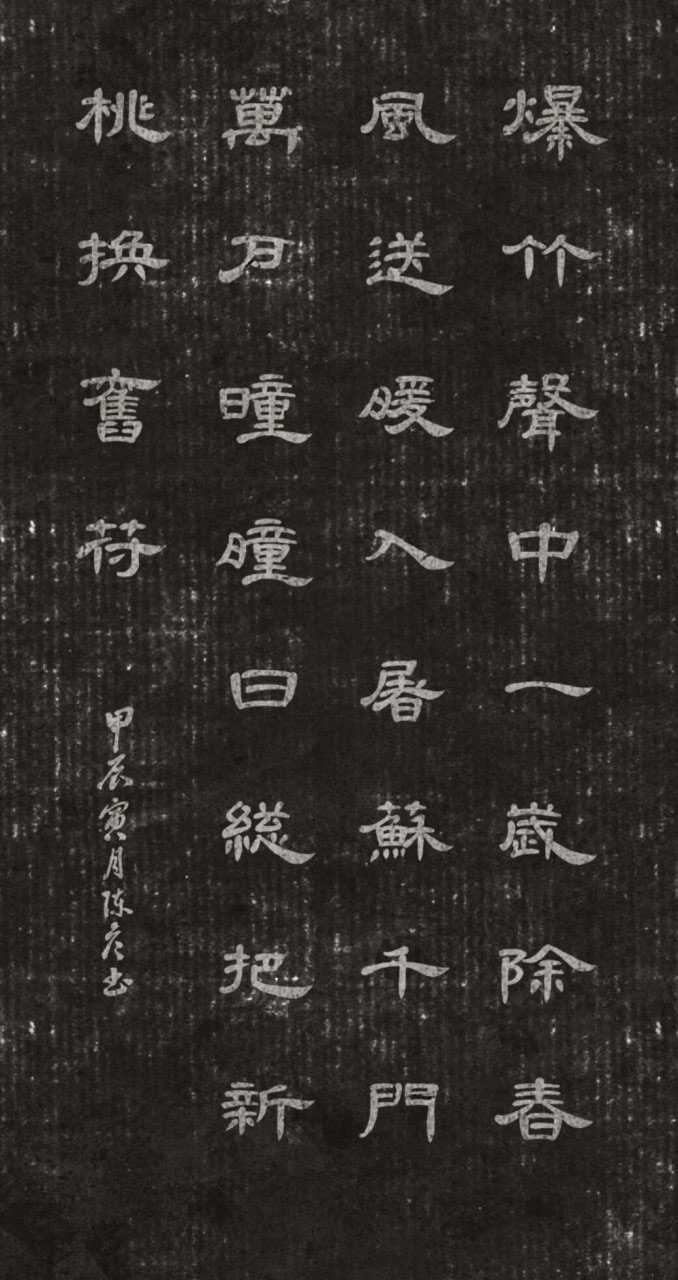 爆竹聲中一歲除春
風送暖入屠蘇千門
萬戶曈曈日總把新
桃換舊符
甲辰寅月陈彦书